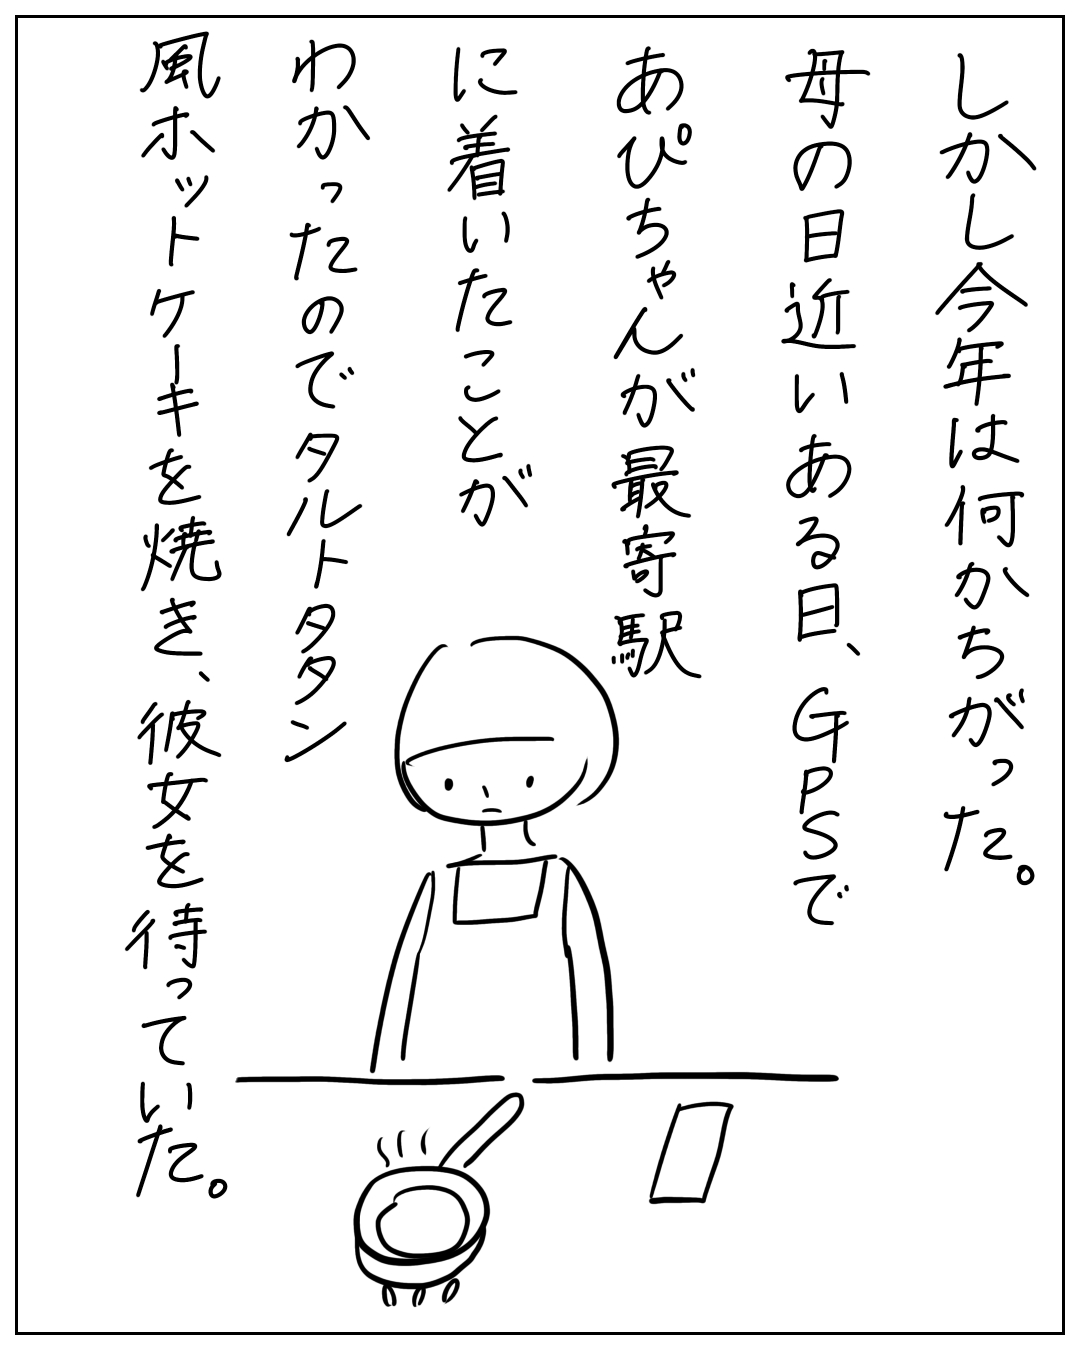 しかし今年は何かちがった。
母の日近いある日、GPSで
あぴちゃんが最寄駅
に着いたことが
わかったのでタルトタタン
風ホットケーキを焼き、彼女を待っていた。